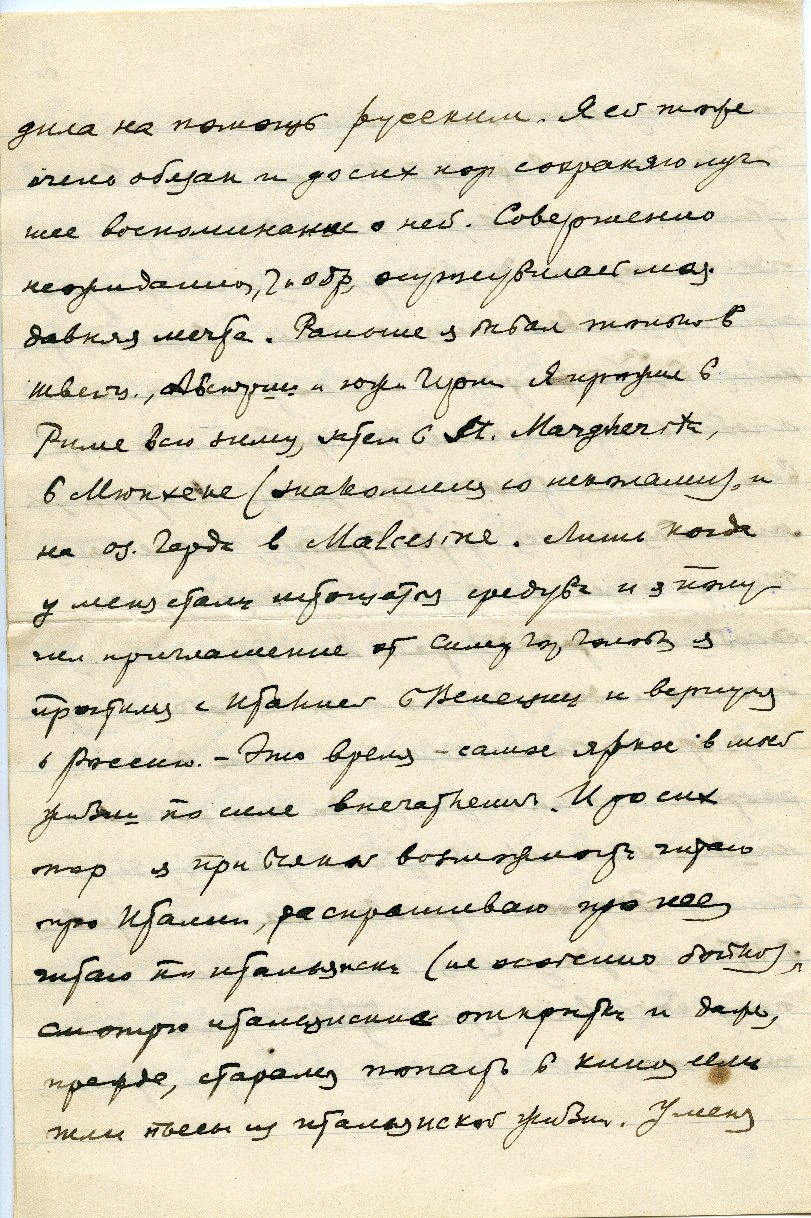 дила на помощь русским. Я ей тоже
очень обязан и до сих пор сохраняю луч
шее воспоминание о ней. Совершенно
неожиданно, т. обр. осуществилась моя
давняя мечта. Раньше я бывал только в
Швейц., Австрии и южн Герм Я прожил в
Риме всю зиму, летом в St. Margherita,
в Мюнхене (знакомился со школами), и
на оз. Гарда в Malcesine. Лишь когда
у меня стали истощаться средства и я полу-
чил приглашение от я
простился с Италией в Венеции и вернулся
в Россию. – Это время – самое яркое в моей
жизни по силе впечатлений. И до сих
пор я при всякой возможности читаю
про Италию, расспрашиваю про нее,
читаю по итальянски (не особенно бойко),
смотрю итальянские открытки и даже,
прежде, старался попасть в кино, если
шли пьесы из итальянской жизни. У меня